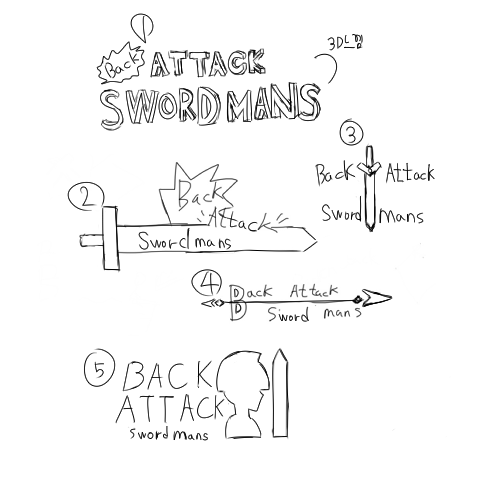 ①
Back ATTACK
SWORD MANS
3D느낌
②
Back
Attack
Sword mans
③
Back Attack
Sword mans
④
Back Attack
Sword mans
⑤
BACK
ATTACK
sword mans